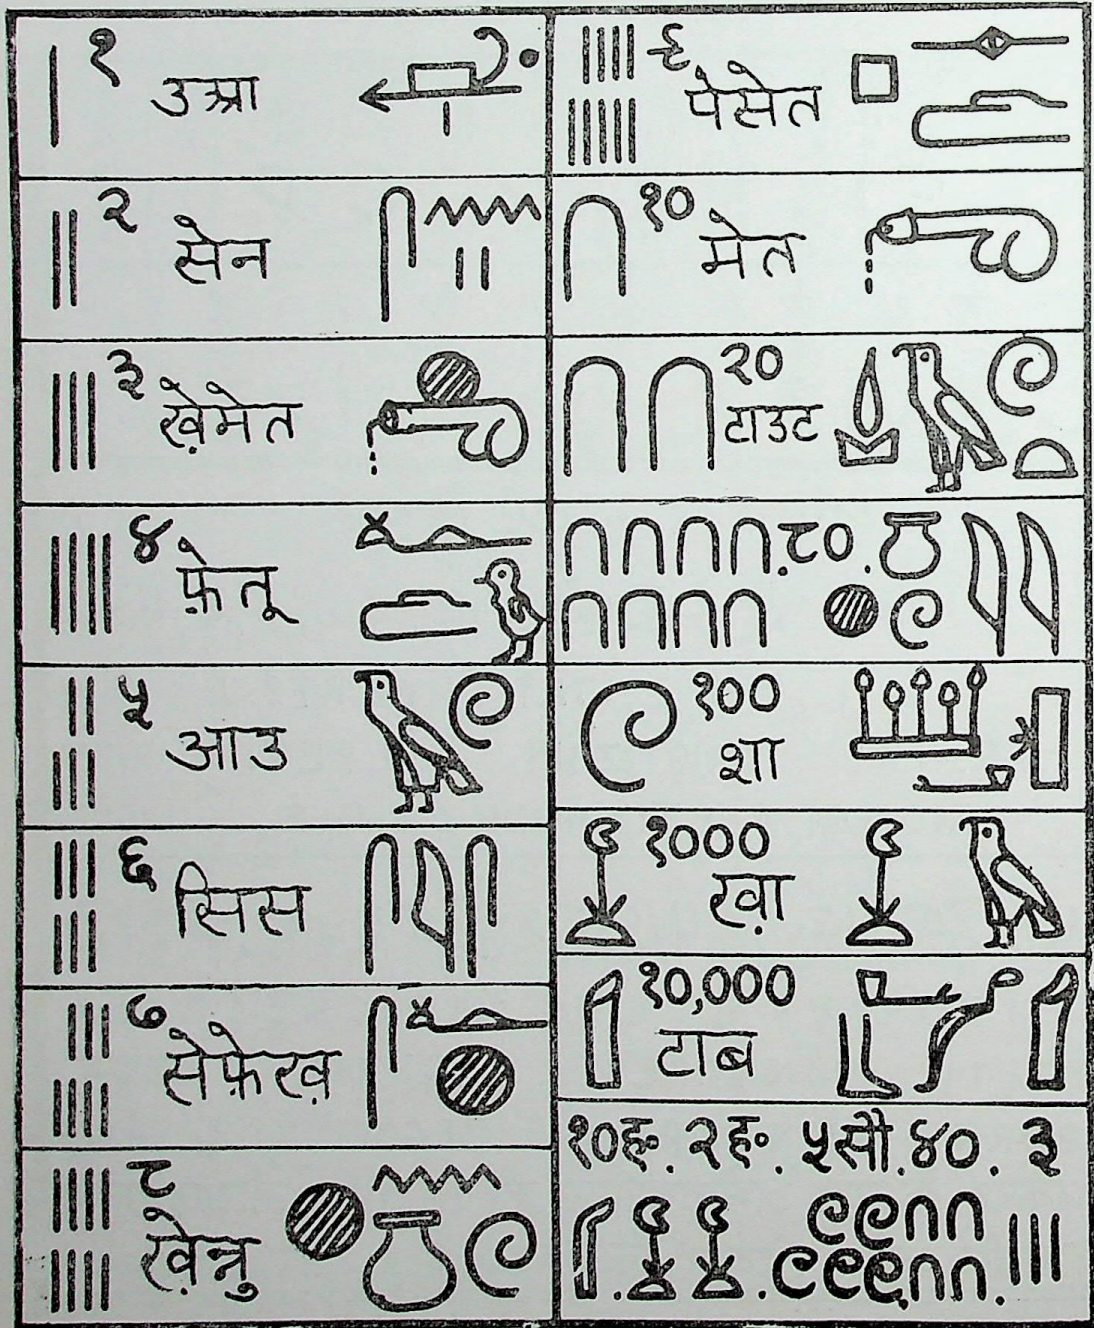 १
उआ
२
सेन
३
ख़ेमेत
४
फ़ेतू
५
आउ
६
सिस
७
सेफ़ेख़
८
ख़ेन्नु
९
पेसेत
१०
मेत
२०
टाउट
.८०.
१००
शा
१०००
ख़ा
१०,०००
टाब
१०ह॰. २ह॰. ५सौ.४०. ३